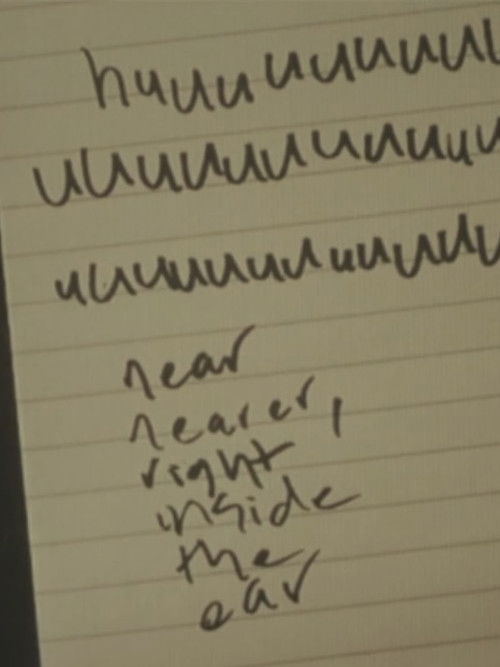 huuuuuuuuuu
uuuuuuuuuuuuu
uuuuuuuuuuuuuu
near
nearer,
right
inside
the
ear